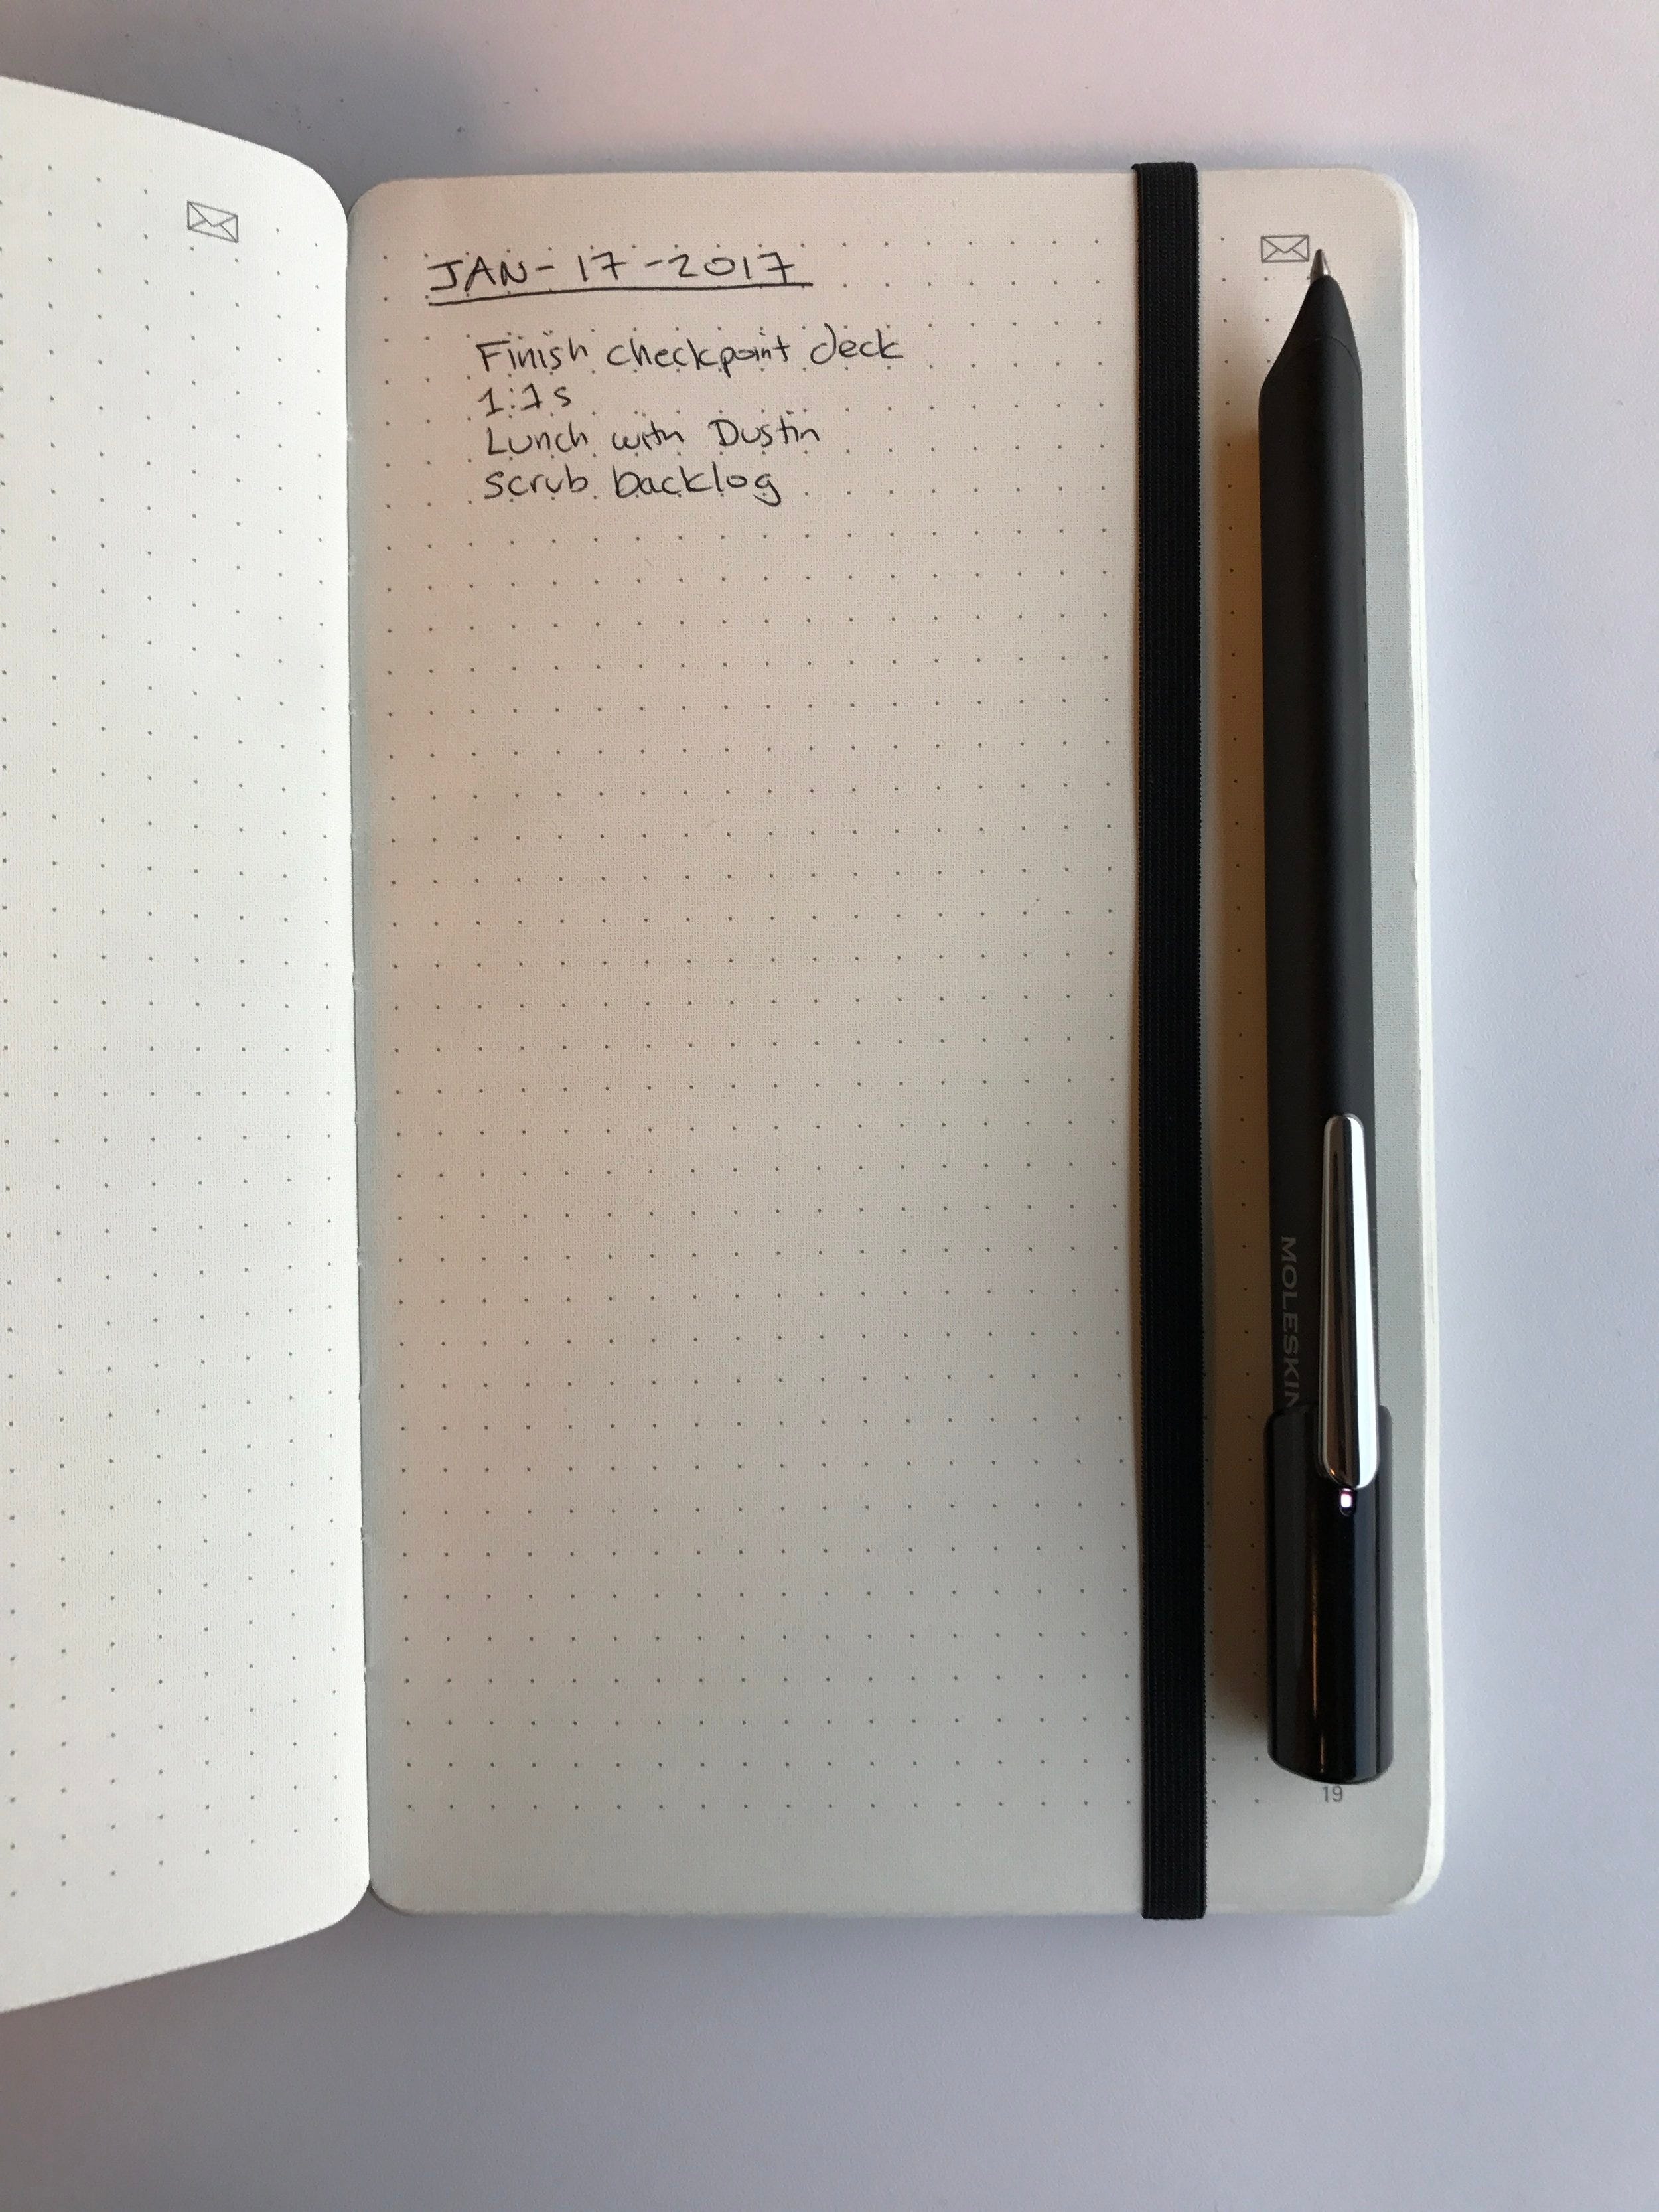 JAN-17-2017
Finish checkpoint deck
1:1s
Lunch with Dustin
Scrub backlog
MOLESKIN
19